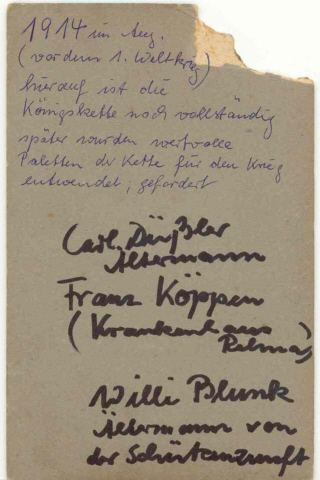 1914 im Aug.
(vor dem 1. Weltkrieg)
hierauf ist die
Königskette noch vollständig
später wurden wertvolle
Paletten der Kette für den Krieg
entwendet, gefordert
Carl Düßler
Altermann
Franz Köppen
(Krankenhaus
Willi Blunk
Ältermann von
der Schützenzunft